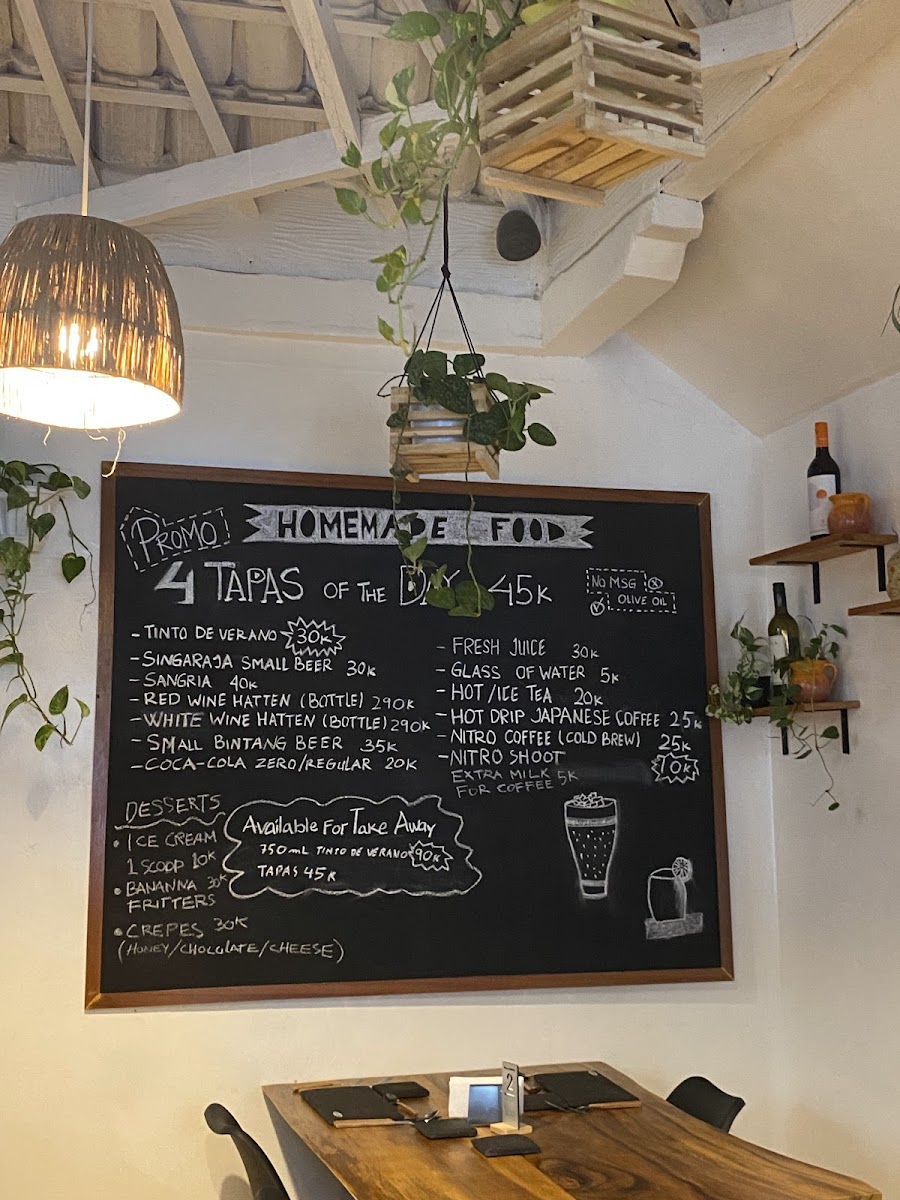 PROMO
HOMEMADE FOOD
4 TAPAS OF THE DAY 45K
NO MSG
OLIVE OIL
- TINTO DE VERANO 30K
- SINGARAJA SMALL BEER 30K
- SANGRIA 40K
- RED WINE HATTEN (BOTTLE) 290K
- WHITE WINE HATTEN (BOTTLE) 290K
- SMALL BINTANG BEER 35K
- COCA-COLA ZERO/REGULAR 20K
- FRESH JUICE 30K
- GLASS OF WATER 5K
- HOT/ICE TEA 20K
- HOT DRIP JAPANESE COFFEE 25K
- NITRO COFFEE (COLD BREW) 25K
- NITRO SHOOT 10K
EXTRA MILK 5K
FOR COFFEE
DESSERTS
• ICE CREAM
1 SCOOP 10K
• BANANNA 30K
FRITTERS
• CREPES 30K
(HONEY/CHOCOLATE/CHEESE)
Available For Take Away
750mL TINTO DE VERANO 90K
TAPAS 45K
2